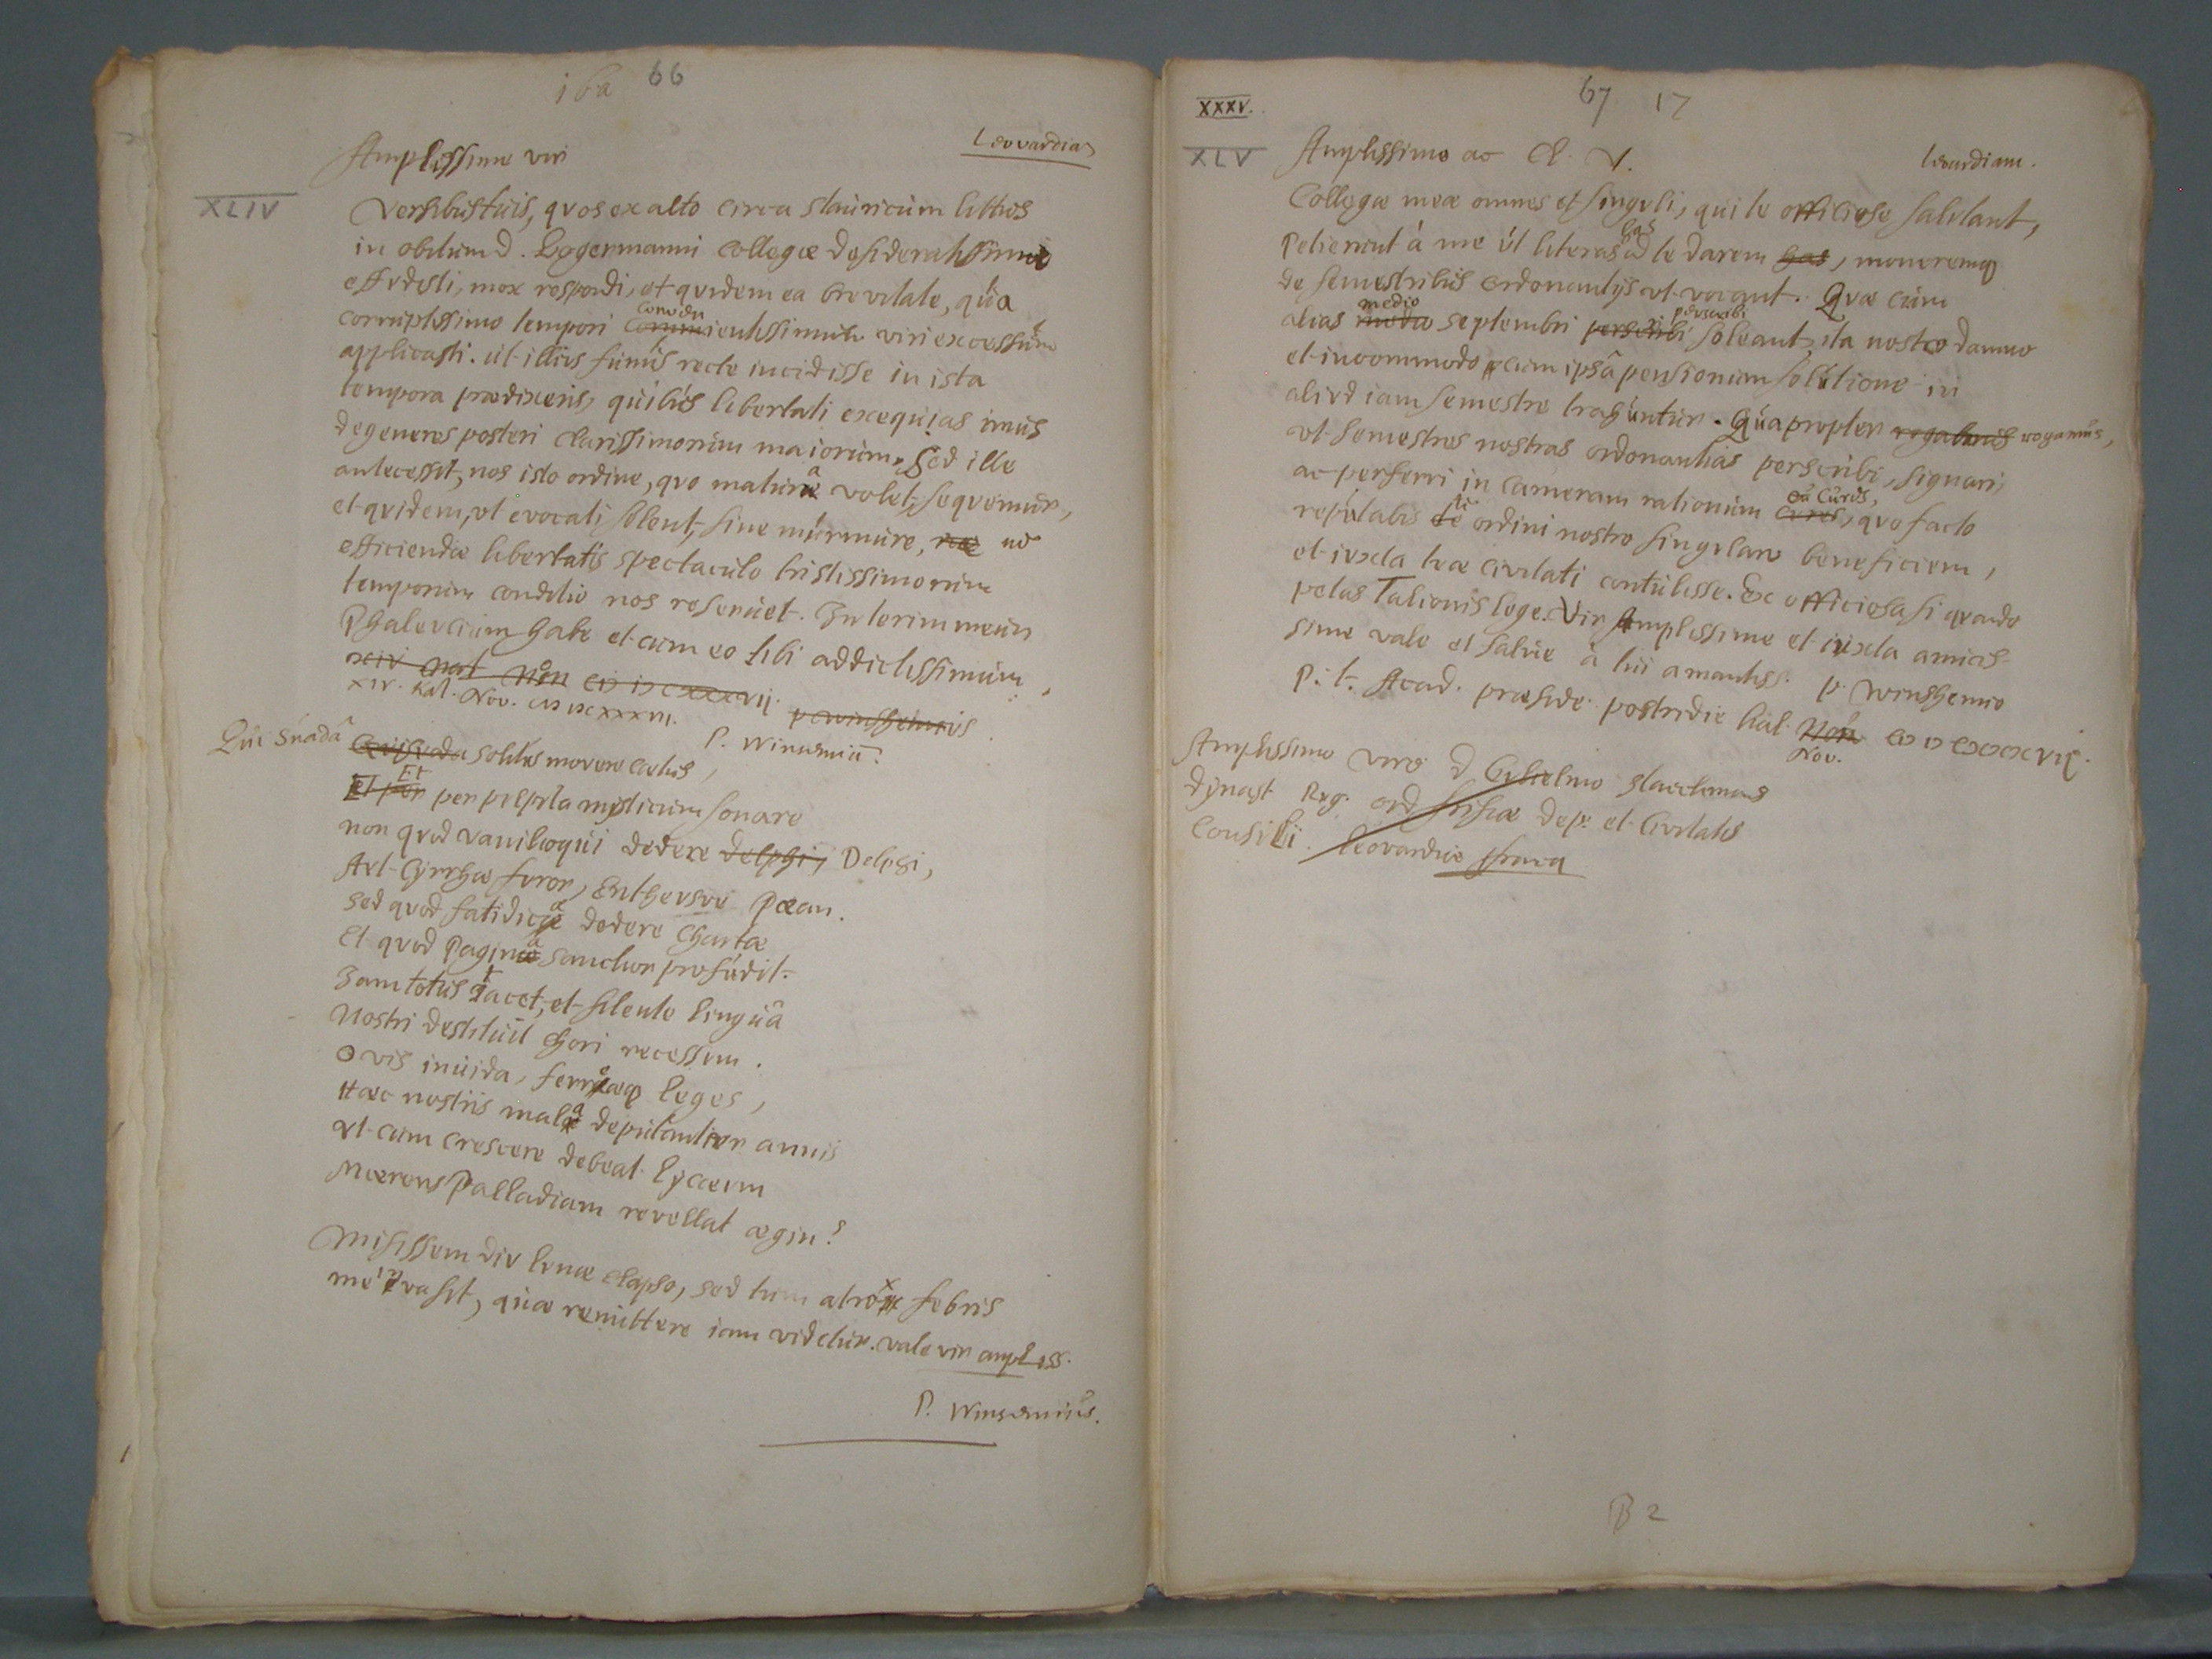 16a 66
Leovardia
Amplissime vir
XLIV
Versibus tuis, quos ex alto circa stauricum littus
in obitum d. Bogermanni collegæ desideratissimi
effudisti, mox respondi, et quidem ea brevitate, qua
corruptissimo tempori viri excessum
applicasti. ut illius funus recte incidisse in ista
tempora prædixeris, quibus libertati exequias imus
degeneres posteri clarissimorum maiorum. Sed ille
antecessit, nos isto ordine, quo natura volet, sequemur,
et quidem, ut evocati solent, sine murmure, ne
efficiendæ libertatis spectaculo tristissimorum
temporum conditio nos reservet. Interim meum
Phaleucium habe et cum eo tibi addictissimum,
xiv. Kal. Nov.
P. Winsemiũ.
Qui suada solitus movere cœtus,
Et per pulpita mysticum sonare
non quod vaniloqui dedere delphi, Delphi,
Aut Cyrrhæ furor, Entheusve Pæan.
sed quod fatidicæ dedere chartæ
Et quod Pagina sanctior profudit.
Iam totus tacet, et silente lingua
Nostri destituit chori recessum.
O vis inuida, ferreæq leges,
Hæc nostris mala deputantur annis
Ut cum crescere debeat Lycæum
Mœrens Palladiam revellat ægin?
Misissem diu lunæ elapso, sed tum atrox febris
me invasit, quæ remittere iam videtur. vale vir ampliss.
P. Winsemius.
XXXV.
67 17
XLV
Amplissimo ac Cl. V.
Leovardiam.
Collegæ meæ omnes et singuli, qui te officiose salutant,
Petierunt á me út literas has ad te darem has, moneremq
de semestribus ordonantijs ut vocant. Quæ cúm
alias medio septembri perscribi soleant, ita nostro damno
et incommodo cum ipsâ pensionum solutione in
aliud iam semestre trahuntur. Quapropter rogamus,
ut semestres nostras ordonantias perscribi, signari,
ac perferri in cameram rationum cures, quo facto
reputabis te ordini nostro singulare beneficium,
et iuxta tuæ civitati contulisse. Ex officiosa si quando
petas Talionis lege. Vir Amplissime et iuxta amicis-
sime vale et salve à tui amantiss. P. Winshemio
p. t. Acad. præside postridie kal. Nov.
Amplissimo viro d Gulielmo Staeckmans
dynast Reg. ord frisiæ dep. et Civitatis
Consilii. Leovardiæ
B 2